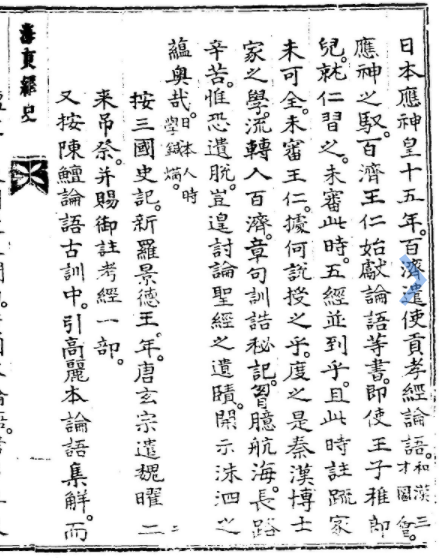 日本應神皇十五年。百濟遣使貢孝經論語。和漢三才圖會。
應神之馭。百濟王仁始獻論語等書。即使王子稚郎
兒。就仁習之。未審此時。五經並到乎。且此時註䟽家
未可全。未審王仁。據何說授之乎。度之是秦漢博士
家之學。流轉人百濟。章句訓詁秘記。胷臆航海。長路
辛苦。惟恐遺脫。豈遑討論聖經之遺賾。開示洙泗之
蘊奧哉。日本人時學鍼焫。
按三國史記。新羅景德王。年。唐玄宗遣魏曜二二
来吊祭。并賜御註考經一部。
又按陳鱣論語古訓中。引高麗本論語集解。而
海東繹史